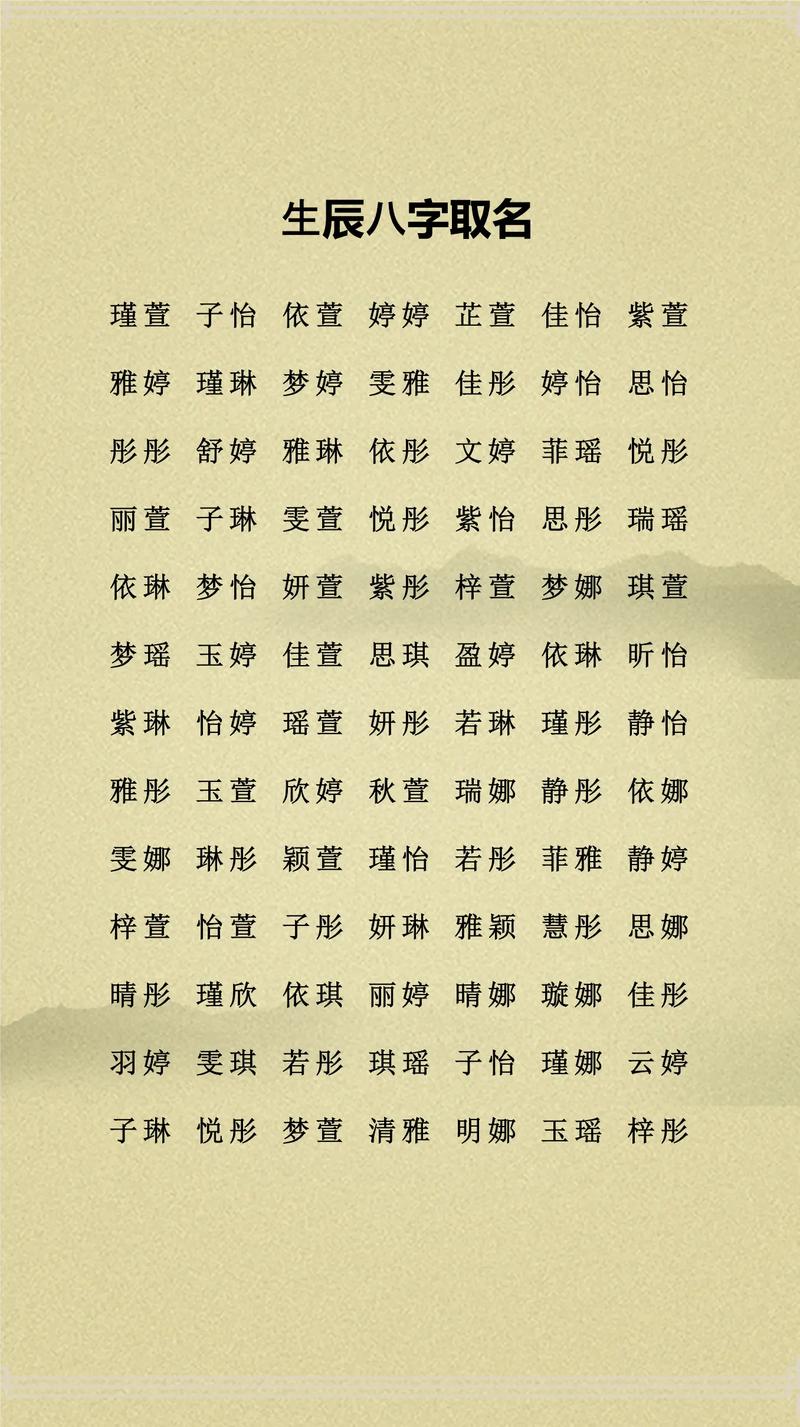 生辰八字取名
瑾萱 子怡 依萱 婷婷 芷萱 佳怡 紫萱
雅婷 瑾琳 梦婷 雯雅 佳彤 婷怡 思怡
彤彤 舒婷 雅琳 依彤 文婷 菲瑶 悦彤
丽萱 子琳 雯萱 悦彤 紫怡 思彤 瑞瑶
依琳 梦怡 妍萱 紫彤 梓萱 梦娜 琪萱
梦瑶 玉婷 佳萱 思琪 盈婷 依琳 昕怡
紫琳 怡婷 瑶萱 妍彤 若琳 瑾彤 静怡
雅彤 玉萱 欣婷 秋萱 瑞娜 静彤 依娜
雯娜 琳彤 颖萱 瑾怡 若彤 菲雅 静婷
梓萱 怡萱 子彤 妍琳 雅颖 慧彤 思娜
晴彤 瑾欣 依琪 丽婷 晴娜 璇娜 佳彤
羽婷 雯琪 若彤 琪瑶 子怡 瑾娜 云婷
子琳 悦彤 梦萱 清雅 明娜 玉瑶 梓彤